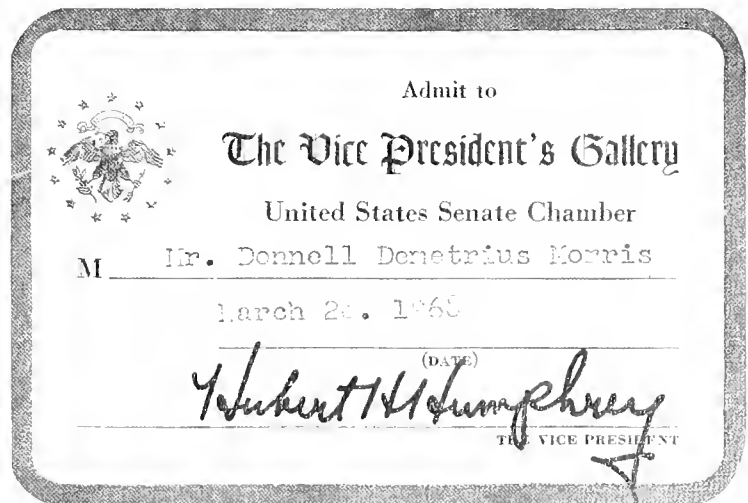 Admit to
The Vice President's Gallery
United States Senate Chamber
M Mr. Donnell Demetrius Morris
March
(DATE)
Hubert H Humphrey
THE VICE PRESIDENT